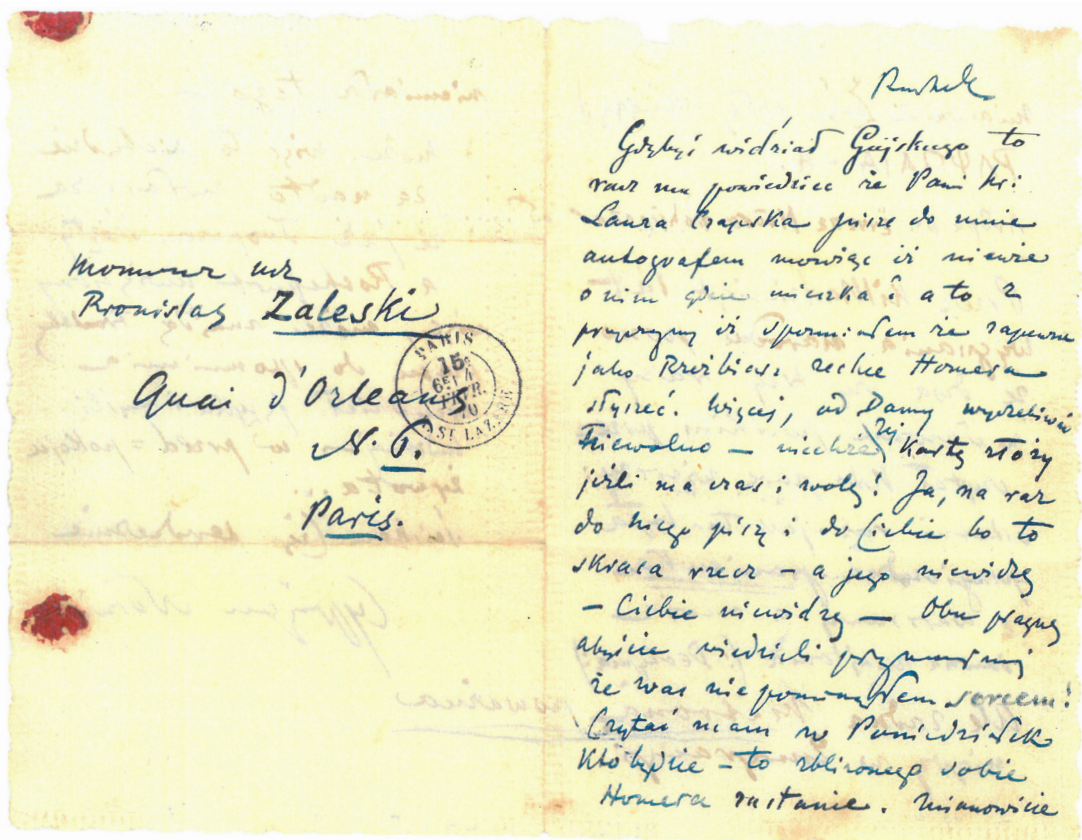 Monsieur
Bronislas Zaleski
Quai d'Orleans
N. 6.
Paris.
PARIS
15
ST LAZARE
Gdybyś widział Gujskiego to
racz mu powiedzieć że Pani Hr:
Laura Czapska pisze do mnie
autografem mowiąc iż niewie
o nim gdzie mieszka? a to z
przyczyny iż spomniałem że zapewne
jako Rzeźbiarz zechce Homera
słyszeć. Więcej, od Damy
niewolno — niechże jej Kartę złoży
jeśli ma czas i wolę! Ja, na raz
do niego piszę i do Ciebie bo to
skraca rzecz — a jego niewidzę
— Ciebie niewidzę — Obu pragnę
abyście wiedzieli przynajmniej
że was nie pominąłem sercem!
Czytać mam w Poniedziałek
Kto będzie — to zbliżonego sobie
Homera zastanie. Mianowicie